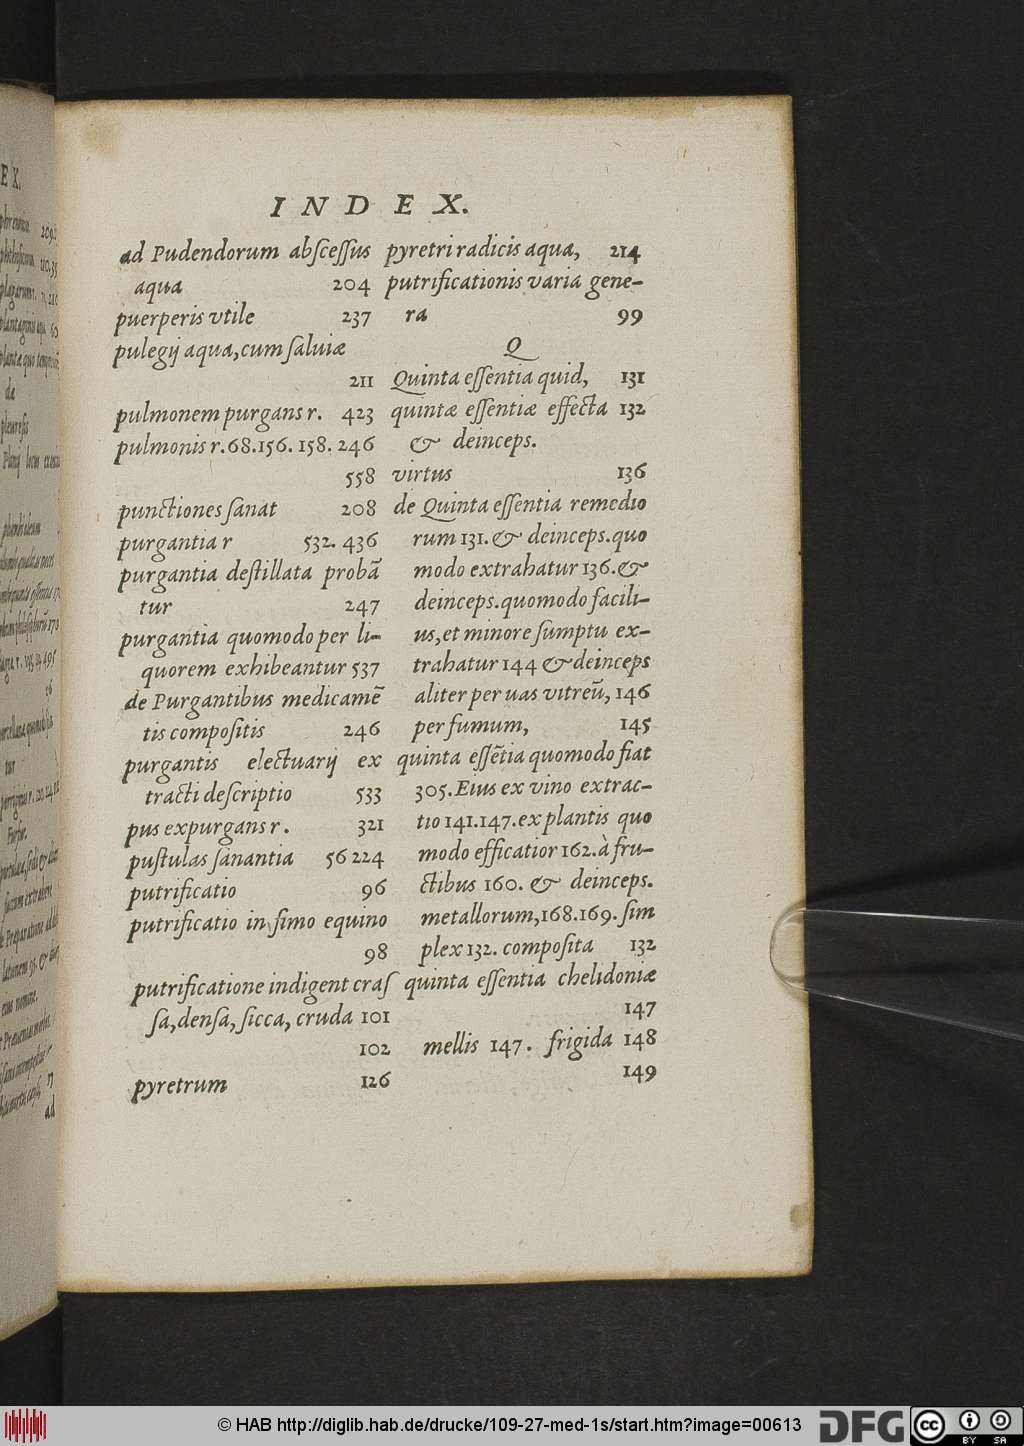 INDEX.
ad Pudendorum abſceſſus
aqua 204
puerperis vtile 237
pulegij aqua, cum ſaluiæ
211
pulmonem purgans r. 423
pulmonis r. 68. 156. 158. 246
558
punctiones ſanat 208
purgantia r 532. 436
purgantia deſtillata probã
tur 247
purgantia quomodo per li-
quorem exhibeantur 537
de Purgantibus medicamẽ
tis compoſitis 246
purgantis electuarij ex
tracti deſcriptio 533
pus expurgans r. 321
puſtulas ſanantia 56 224
putrificatio 96
putrificatio in ſimo equino
98
putrificatione indigent craſ
ſa, denſa, ſicca, cruda 101
102
pyretrum 126
pyretri radicis aqua, 214
putrificationis varia gene-
ra 99
Q
Quinta eſſentia quid, 131
quintæ eſſentiæ effecta 132
& deinceps.
virtus 136
de Quinta eſſentia remedio
rum 131. & deinceps. quo
modo extrahatur 136. &
deinceps. quomodo facili-
us, et minore ſumptu ex-
trahatur 144 & deinceps
aliter per uas vitreũ, 146
per fumum, 145
quinta eſſẽtia quomodo fiat
305. Eius ex vino extrac-
tio 141. 147. ex plantis quo
modo efficatior 162. à fru-
ctibus 160. & deinceps.
metallorum, 168. 169. ſim
plex 132. compoſita 132
quinta eſſentia chelidoniæ
147
mellis 147. frigida 148
149
E X.
209.
210.35
60
dæ
pleureſis
Planij locus
26
tur
eius nomine.
17
ad
© HAB http://diglib.hab.de/drucke/109-27-med-1s/start.htm?image=00613
DFG
cc
BY SA